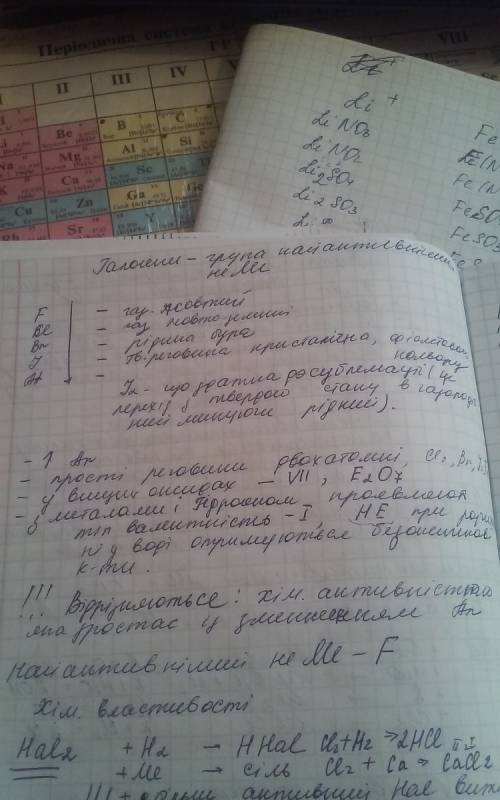 Періодична система
II III IV VIII
Be B C
Mg Al Si
Ca Sc
Cu Zn Ga Ge
Sr Y
Li +
LiNO3
LiNO2
Li2SO4
Li2SO3
Fe
FeSO
FeSO3
Галогени – група найактивніших
неМе
F – газ. жовтий
– газ жовто-зелений
Br – рідина бура
J – тв. речовина кристалічна, фіолетового
At – кольору
J2 – що здатна до сублемації (це
перехід з твердого стану в газопод
ний минуючи рідкий).
- ↑ Ar
- прості речовини двохатомні, Cl2, Br2, J2
- у вищих оксидах – VII, E2O7
- з металами і Гідрогеном проявляють
тіп валентність – I, HE при розчи
ні у воді отримуються безоксигенові
к-ти.
!!! Відрізняються: хім. активністю
яка зростає із зменшенням Ar
Найактивніший неМе – F
Хім. властивості
Hal2 + H2 → HHal Cl2 + H2 → 2HCl
+ Me → сіль Cl2 + Ca → CaCl2
!!! + більш активний Hal вит